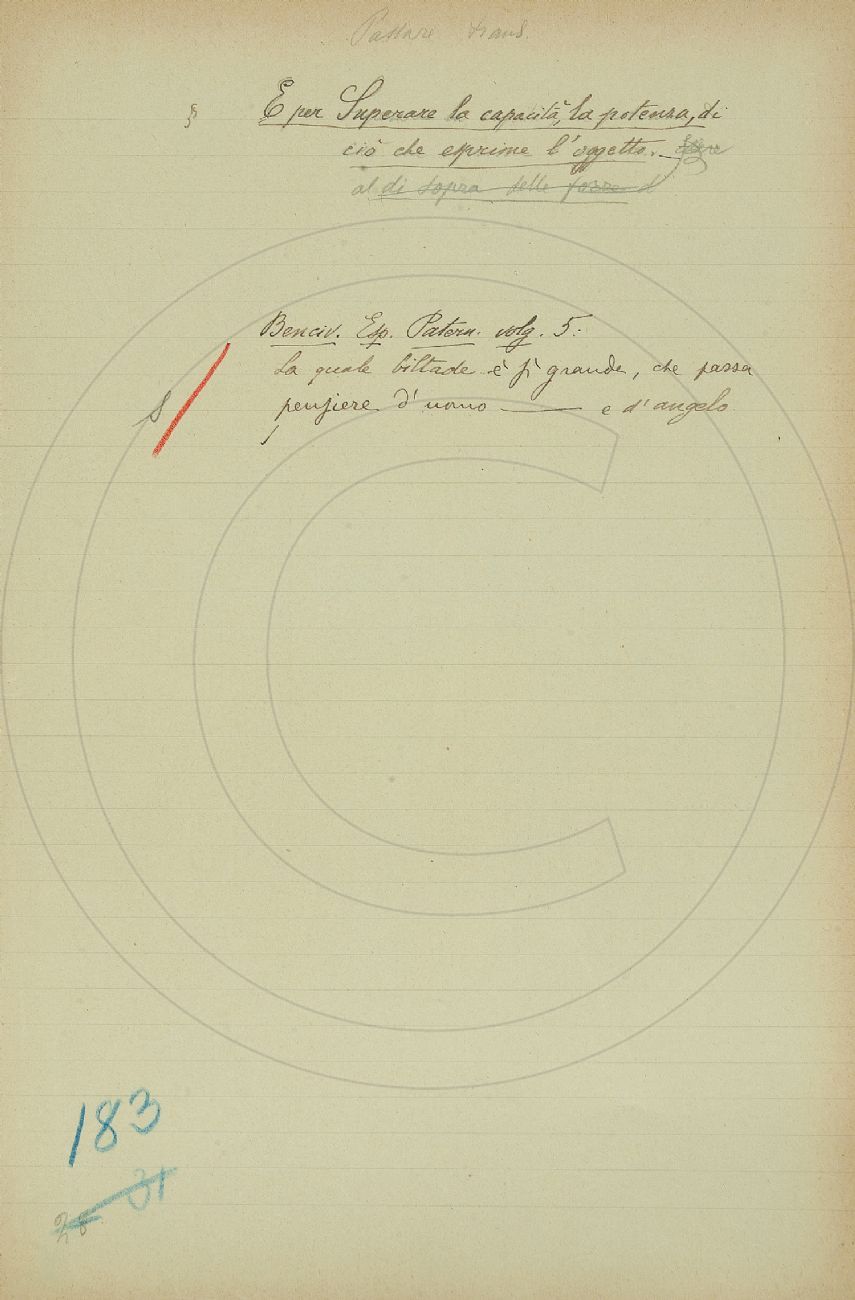 Passare trans.
§ E per Superare la capacità, la potenza, di
ciò che esprime l'oggetto.
al di sopra delle forze d
Benciv. Esp. Patern. volg. 5:
La quale biltade è sì grande, che passa
S pensiere d'uomo —— e d'angelo
183
31
28